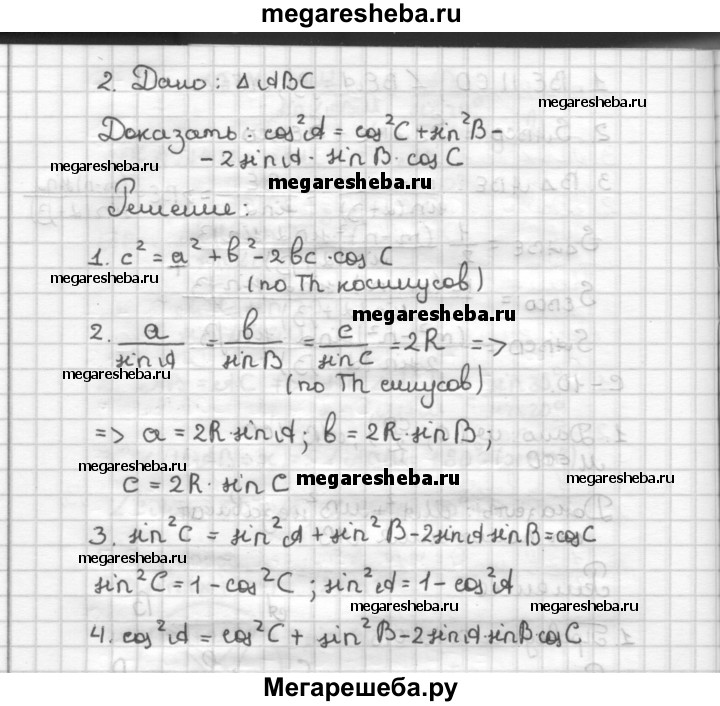 megaresheba.ru
2. Дано: Δ ABC
megaresheba.ru
Доказать: cos²A = cos²C + sin²B -
- 2 sin A · sin B · cos C
megaresheba.ru
megaresheba.ru
Решение:
1. c² = a² + b² - 2bc · cos C
megaresheba.ru
(по Th косинусов)
megaresheba.ru
2. a/sin A = b/sin B = c/sin C = 2R =>
megaresheba.ru
(по Th синусов)
=> a = 2R · sin A; b = 2R · sin B;
megaresheba.ru
c = 2R · sin C
megaresheba.ru
megaresheba.ru
3. sin²C = sin²A + sin²B - 2sin A sin B = cos C
megaresheba.ru
sin²C = 1 - cos²C ; sin²A = 1 - cos²A
megaresheba.ru
megaresheba.ru
4. cos²A = cos²C + sin²B - 2sin A sin B cos C
Мегарешеба.ру